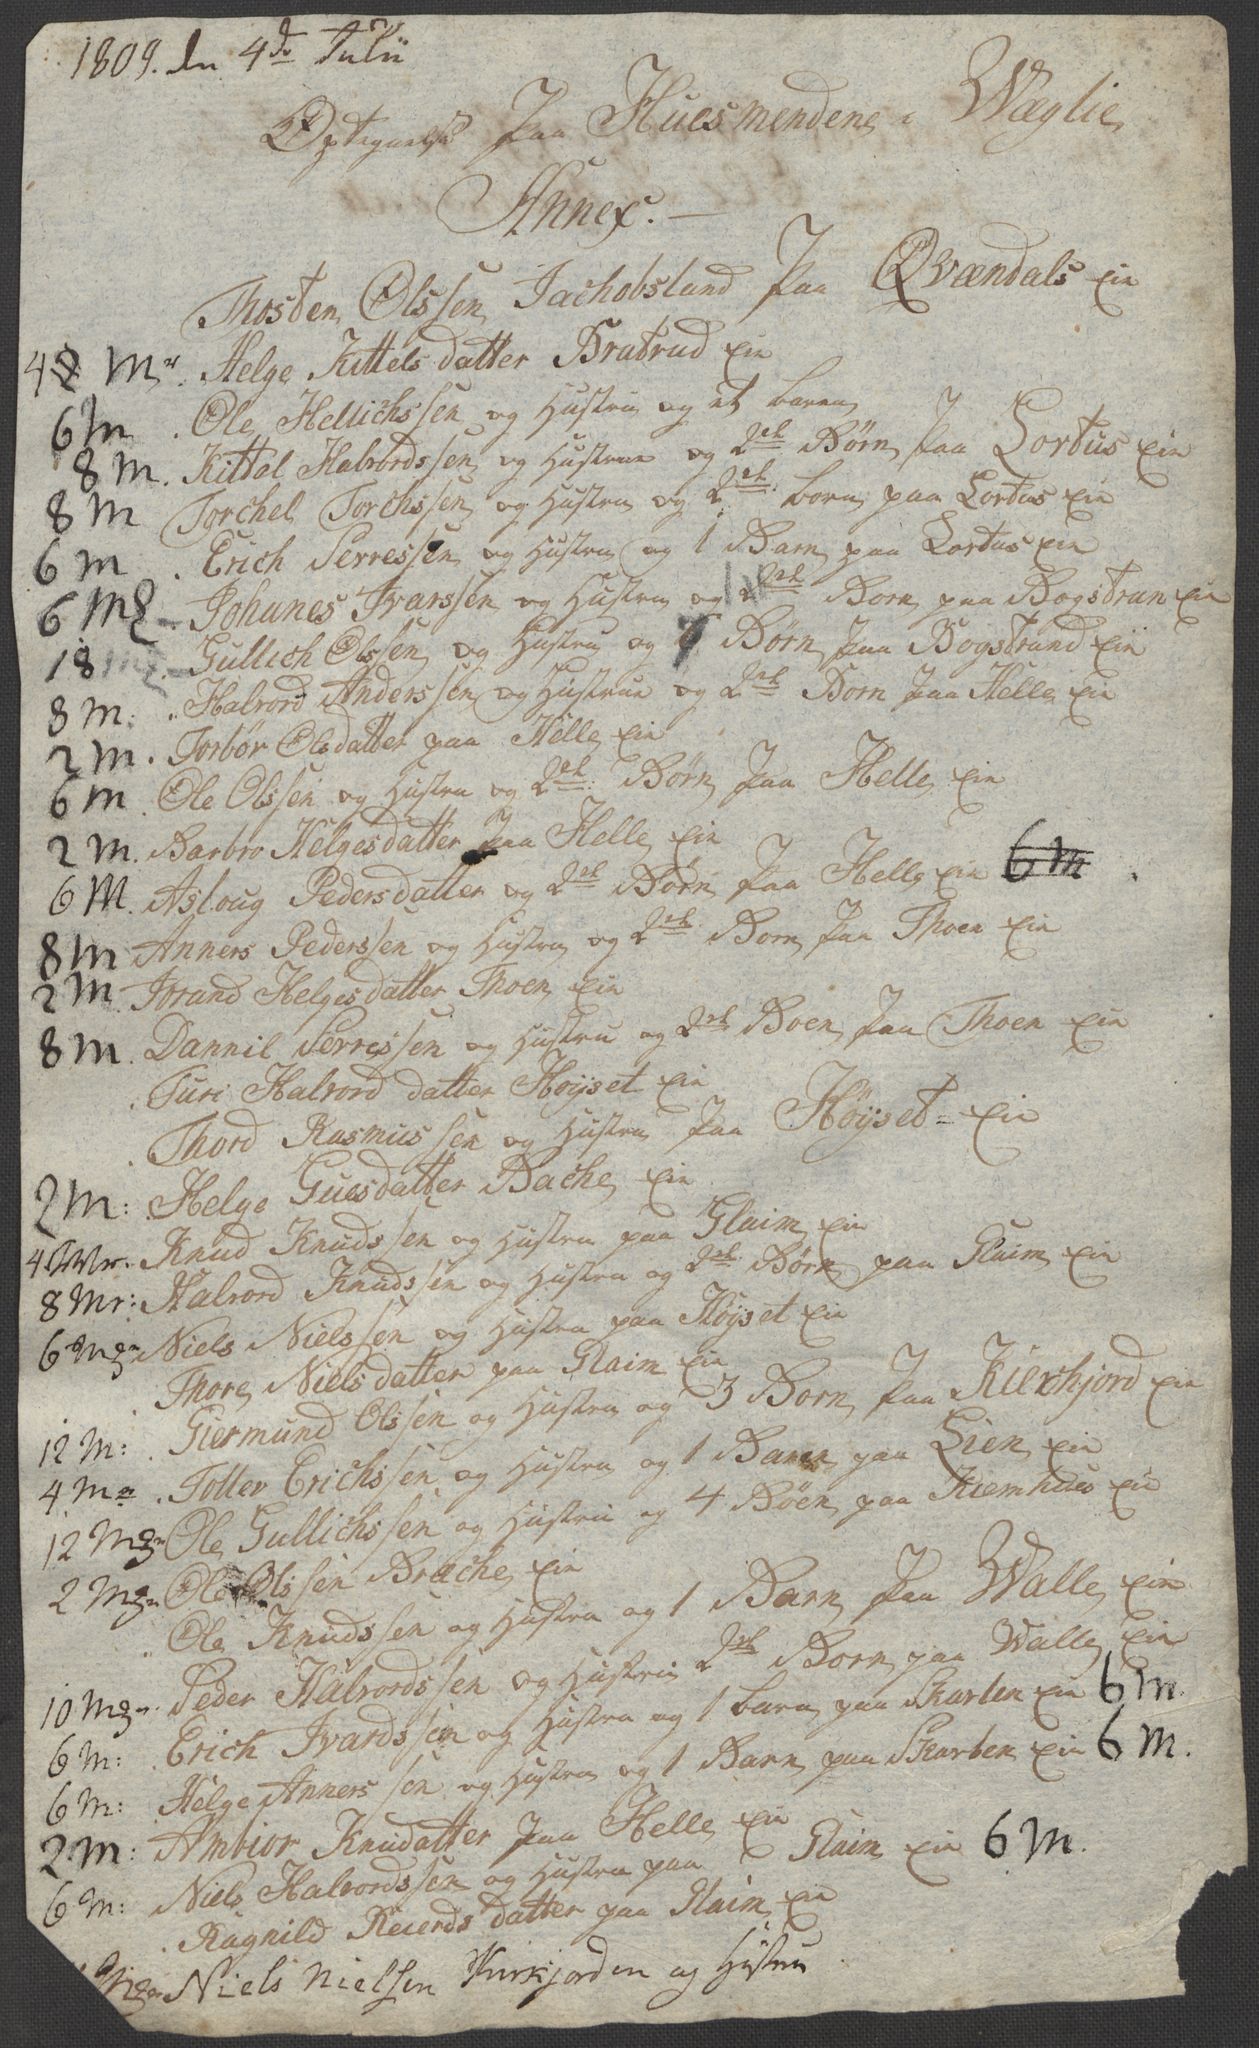 1809. den 4de Julii
Optegnelse paa Huesmendene i Wæglie
Annex. —
Thosten Olssen Jachobsland paa Qvændals Ein
4 Mr. Helge Kittelsdatter Bratrud Ein
6 M . Ole Hellichssen og Hustru og et barn
8 M. Kittel Halvordssen og Hustrue og 2de Børn paa Lortus Ein
8 M Torchel Torchssen og Hustru og 2de born paa Lortus Ein
6 M . Erich Serressen og Hustru og 1 Barn paa Lortus Ein
6 M Johanes Ivarssen og Hustru og 2de Born paa Bogstran Ein
18 Gullich Olssen og Hustru og 7 Børn paa Bogstrand Ein
8 M: Halvord Anderssen og Hustrue og 2de Born paa Helle Ein
2 M. Torbør Olsdatter paa Helle Ein
6 M Ole Olssen og Hustru og 2de Børn paa Helle Ein
2 M. Barbro Helgesdatter paa Helle Ein
6 M. Asloug Pedersdatter og 2de Børn paa Helle Ein 6 M
8 M Anners Pederssen og Hustru og 2de Born paa Thoen Ein
2 M Jorand Helgesdatter Thoen Ein
8 M. Dannil Serressen og Hustru og 2de Boen paa Thoen Ein
Turi Halvord datter Høyset Ein
Thord Rasmussen og Hustru paa Høyset Ein
2 M: Helge Guesdatter Bache Ein
4 Mr. Knud Knudssen og Hustru paa Glaim Ein
8 Mr: Halvord Knudssen og Hustru og 2de Børn paa Glaim Ein
6 Mgn Niels Nielssen og Hustru paa Høyset Ein
Thore Nielsdatter paa Glaim Ein
12 M: Giermund Olssen og Hustru og 3 Born paa Kierkjord Ein
4 M . Tollev Erichssen og Hustru og 1 Baren paa Lien Ein
12 Mgn Ole Gullichssen og Hustru og 4 Bøen paa Kiemhuus Ein
2 Mgn Ole Olssen Brache Ein
Ole Knudssen og Hustru og 1 Barn paa Walle Ein
10 Mgn. Peder Halvordssen og Hustru 2de Born paa Walle Ein
6 M: Erich Ivardssen og Hustru og 1 barn paa Skarben Ein 6 M.
6 M: Helge Anners sen og Hustru og 1 Barn paa Skarben Ein 6 M.
2 M: Ambior Knudatter paa Helle Ein
6 M: Niels Halvordssen og Hustru paa Glaim Ein 6 M.
Ragnild Reierdsdatter paa Glaim Ein
Mgn Niels Nielsen Kirkjorden og Hustru